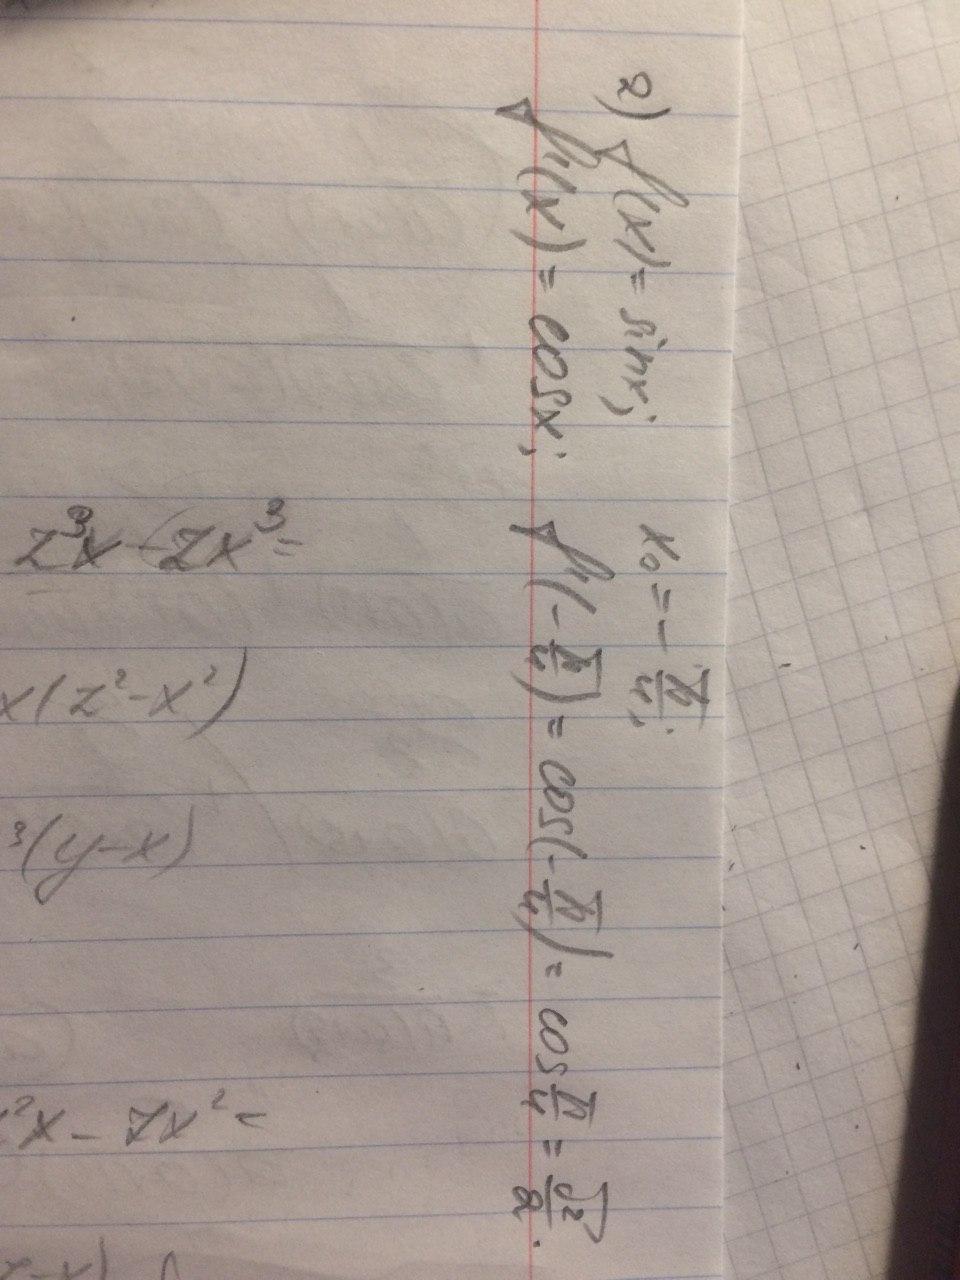 2) f(x) = sinx; x₀ = -π/4;
f'(x) = cosx; f'(-π/4) = cos(-π/4) = cos π/4 = √2/2.
z³x - zx³ =
x(z² - x²)
³(y - x)
²x - zx² =